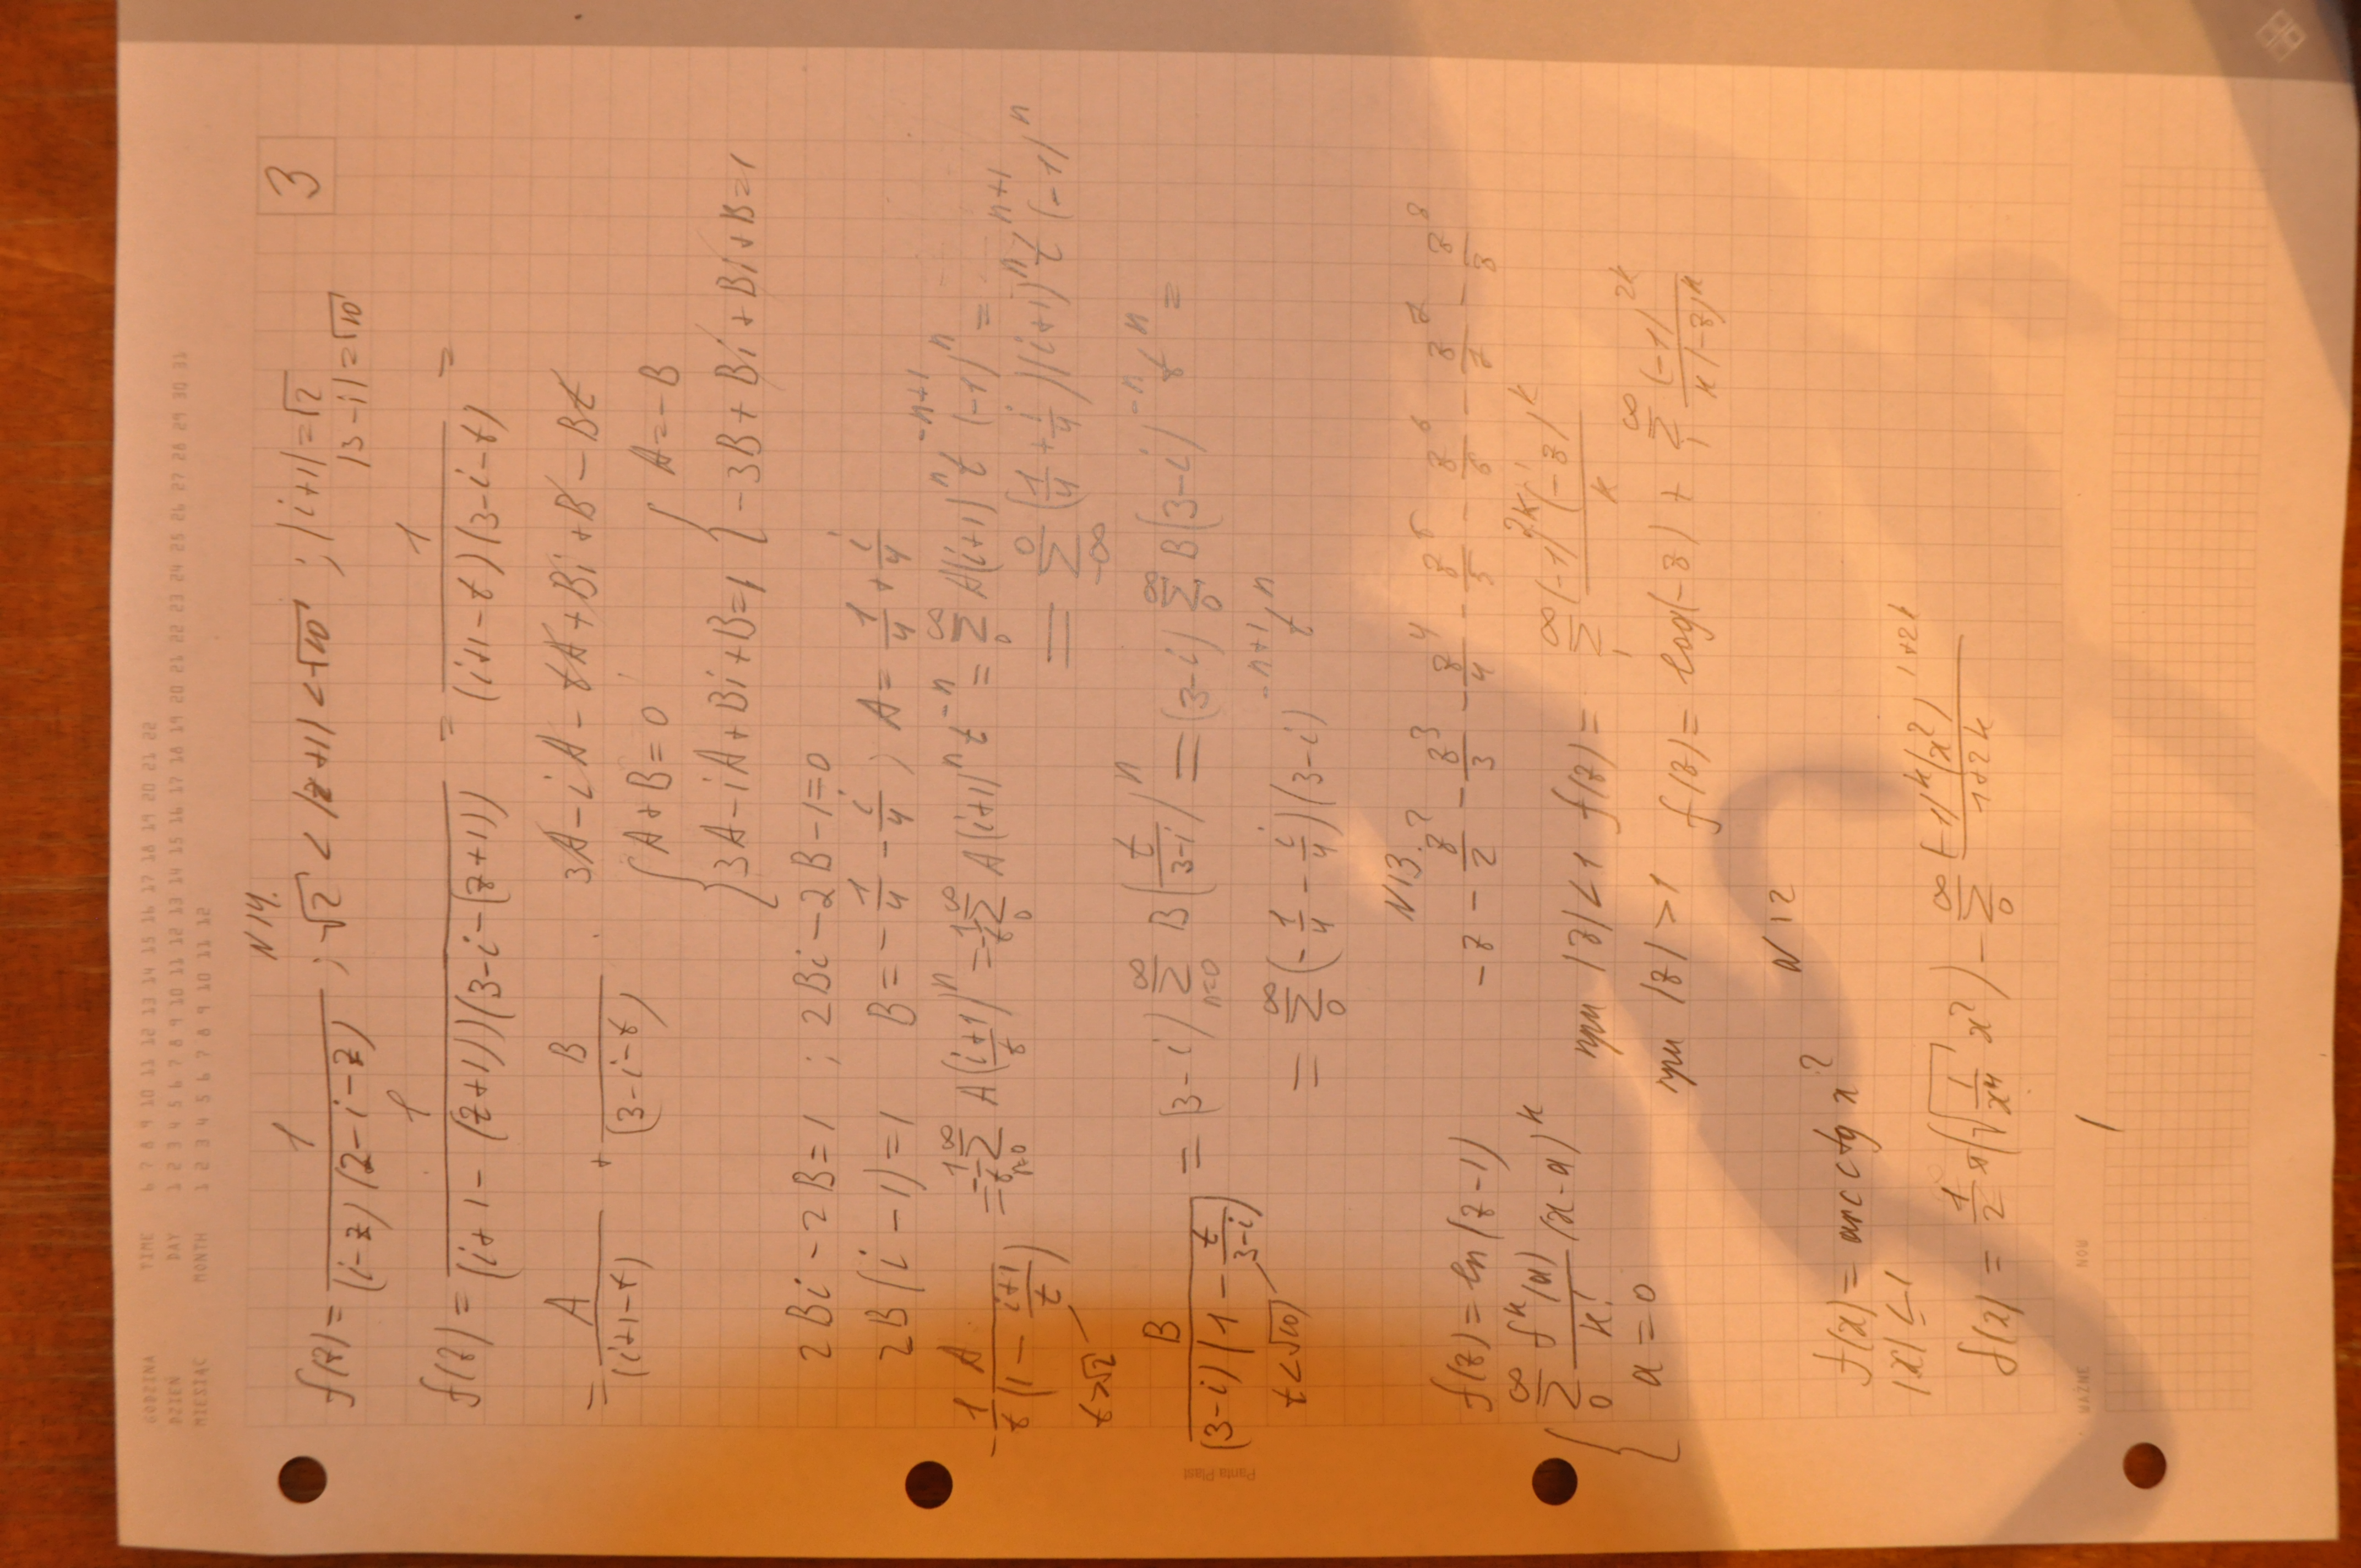 GODZINA TIME 6 7 8 9 10 11 12 13 14 15 16 17 18 19 20 21 22
DZIEŃ DAY 1 2 3 4 5 6 7 8 9 10 11 12 13 14 15 16 17 18 19 20 21 22 23 24 25 26 27 28 29 30 31
MIESIĄC MONTH 1 2 3 4 5 6 7 8 9 10 11 12
3
N 14.
f(z) = 1/((i-z)(2-i-z)) ; √2 < |z+1| < √10 ; |i+1| = √2
|3-i| = √10
f(z) = 1/((i+1-(z+1))(3-i-(z+1))) = 1/((i+1-t)(3-i-t)) =
= A/(i+1-t) + B/(3-i-t) 3A - iA - tA + Bi + B - Bt
{ A+B=0 { A = -B
{ 3A - iA + Bi + B = 1 { -3B + Bi + Bi + B = 1
2Bi - 2B = 1 ; 2Bi - 2B - 1 = 0
2B(i-1) = 1 B = -1/4 - i/4 ; A = 1/4 + i/4
-1/t A/(1 - (i+1)/t) = -1/t ∞Σn=0 A((i+1)/t)^n = -1/t ∞Σ0 A(i+1)^n t^-n = ∞Σ0 A(i+1)^n t^-n+1 (-1)^n =
t > √2 = 0Σ-∞ (1/4 + i/4)(i+1)^n t^n+1 (-1)^n
B/((3-i)(1 - t/(3-i))) = (3-i) ∞Σn=0 B(t/(3-i))^n = (3-i) ∞Σ0 B(3-i)^-n t^n =
t < √10 = ∞Σ0 (-1/4 - i/4)(3-i)^-n+1 t^n
N13.
f(z) = ln(z-1) -z - z²/2 - z³/3 - z⁴/4 - z⁵/5 - z⁶/6 - z⁷/7 - z⁸/8
{ ∞Σ0 f^k(a)/k! (x-a)^k при |z|<1 f(z) = ∞Σ1 (-1)^2k (-z)^k/k
a = 0 при |z|>1 f(z) = log(-z) + ∞Σ1 (-1)^2k/k(-z)^k
N 12
f(x) = arcctg x²
|x| ≤ 1
f(x) = 1/2 π(√(1/x⁴) x²) - ∞Σ0 (-1)^k (x²)^1+2k/1+2k
WAŻNE NOW
Panta Plast